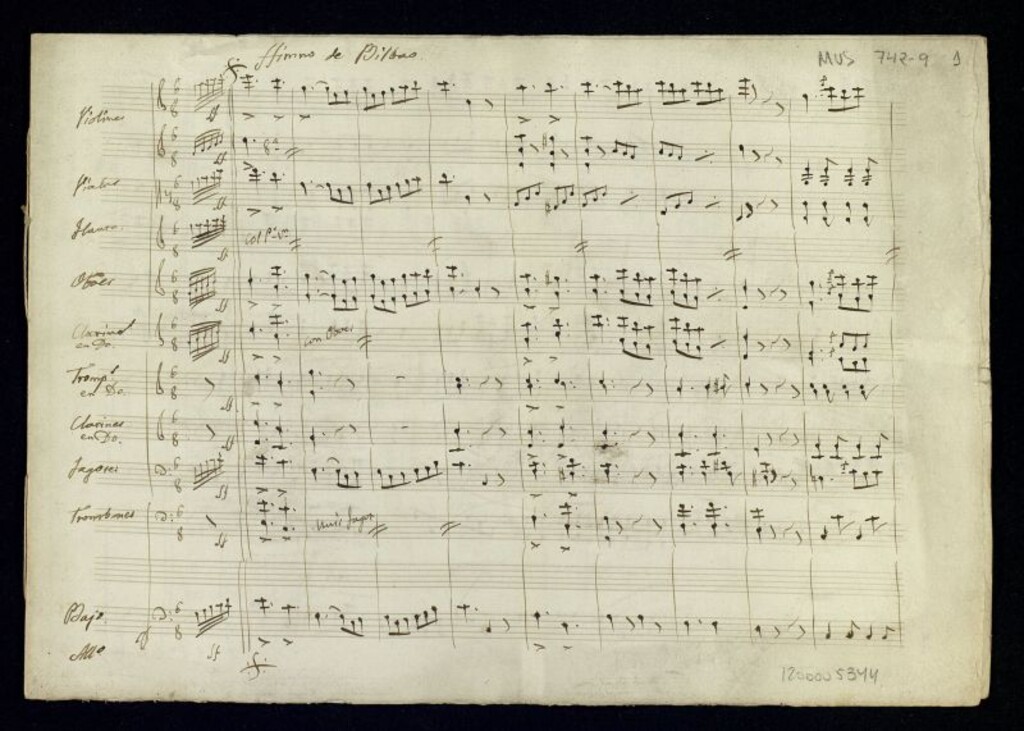 Himno de Bilbao.
MUS 742-9 1
Violines
6 8
8ª
Violas
Flauta.
Col Pº Vº
Oboes
Clarines
en Do.
con Oboes
Tromp.
en Do.
Clarines
en Do.
Fagotes
Trombones
Unis Fagot
Bajo.
Allº
1200005344